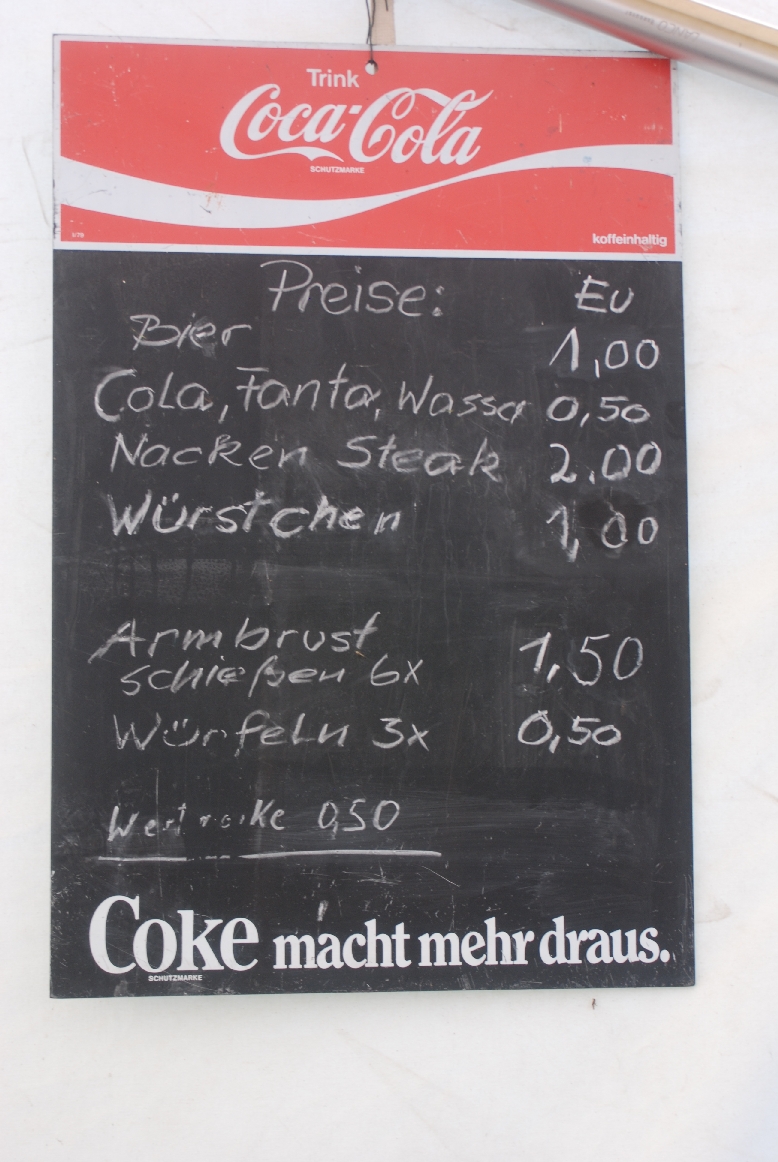 Trink
Coca-Cola
SCHUTZMARKE
koffeinhaltig
Preise: EU
Bier 1,00
Cola, Fanta, Wasser 0,50
Nacken Steak 2.00
Würstchen 1,00
Armbrust
schießen 6x 1,50
Würfeln 3x 0,50
0,50
Coke macht mehr draus.
SCHUTZMARKE